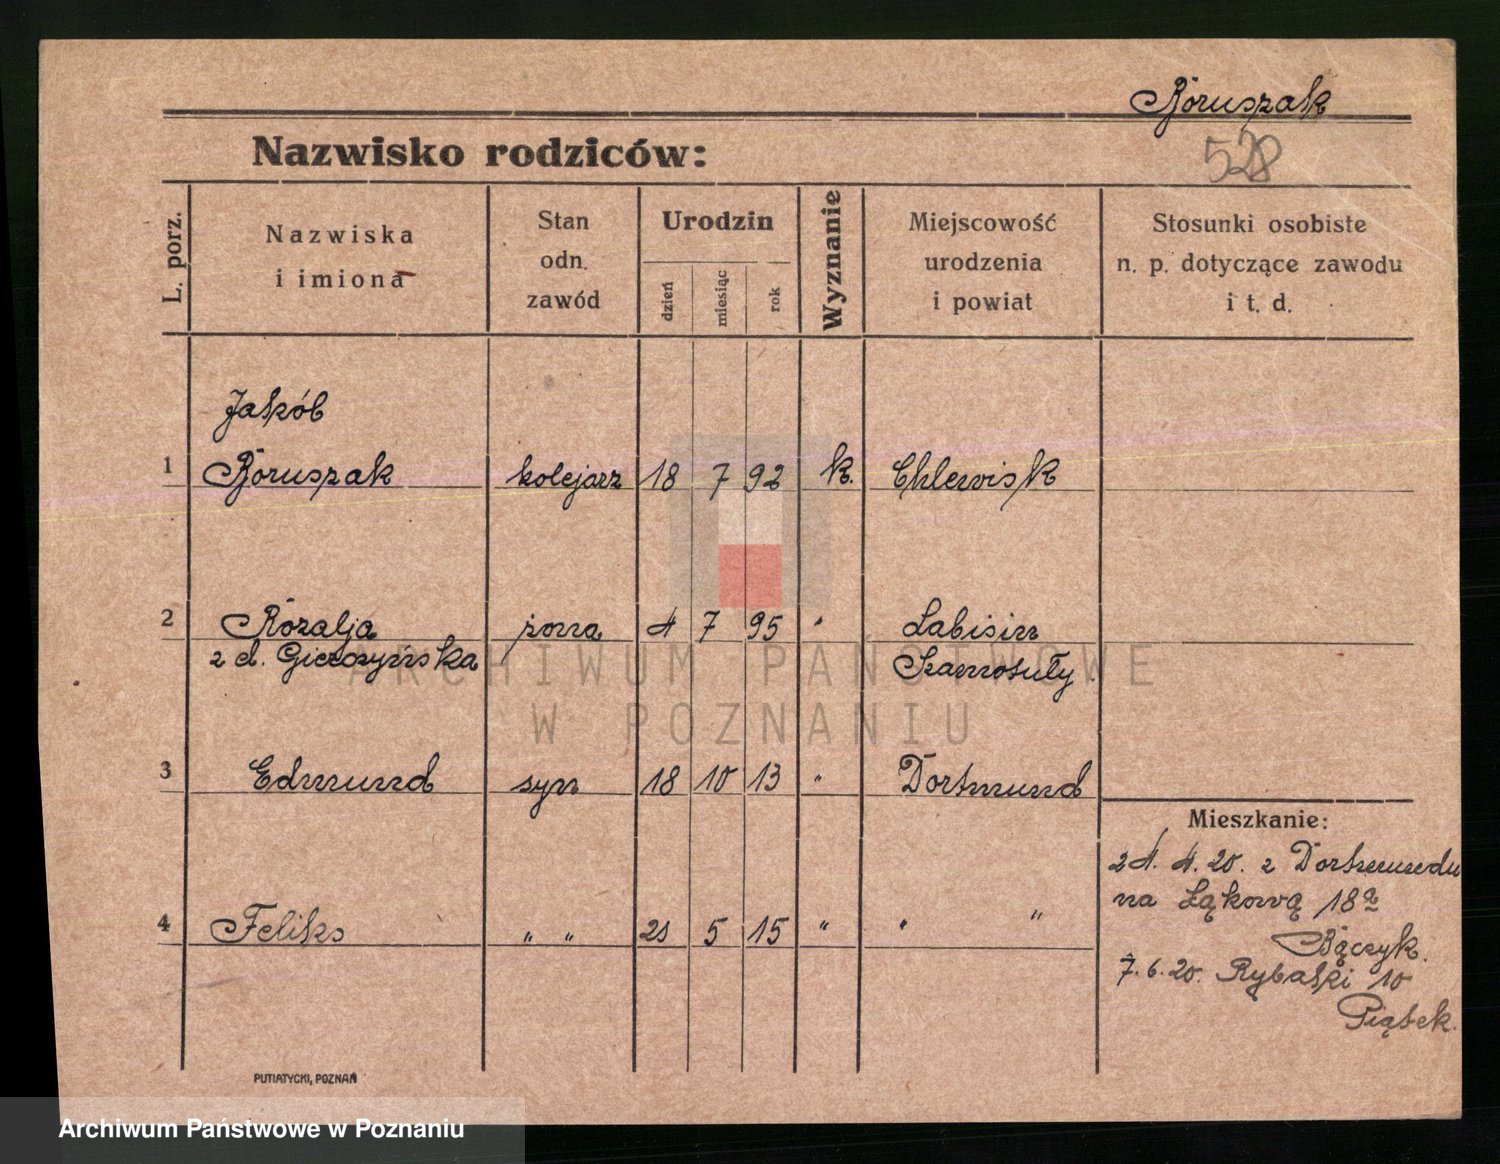 Boruszak
Nazwisko rodziców:
528
L. porz.
Nazwiska
i imiona
Stan
odn.
zawód
Urodzin
dzień
miesiąc
rok
Wyznanie
Miejscowość
urodzenia
i powiat
Stosunki osobiste
n. p. dotyczące zawodu
i t. d.
Jakób
1 Boruszak kolejarz 18 7 92 k. Chlewisk
2 Rozalja żona 4 7 95 " Labisin
z d. Gieczyńska Szamotuły.
3 Edmund syn 18 10 13 " Dortmund
Mieszkanie:
24. 4. 20. z Dortmundu
na Łąkową 18a
4 Feliks " " 21 5 15 " " "
Bączyk.
7. 6. 20. Rybaki 10
Piątek.
PUTIATYCKI, POZNAŃ
ARCHIWUM PAŃSTWOWE
W POZNANIU
Archiwum Państwowe w Poznaniu